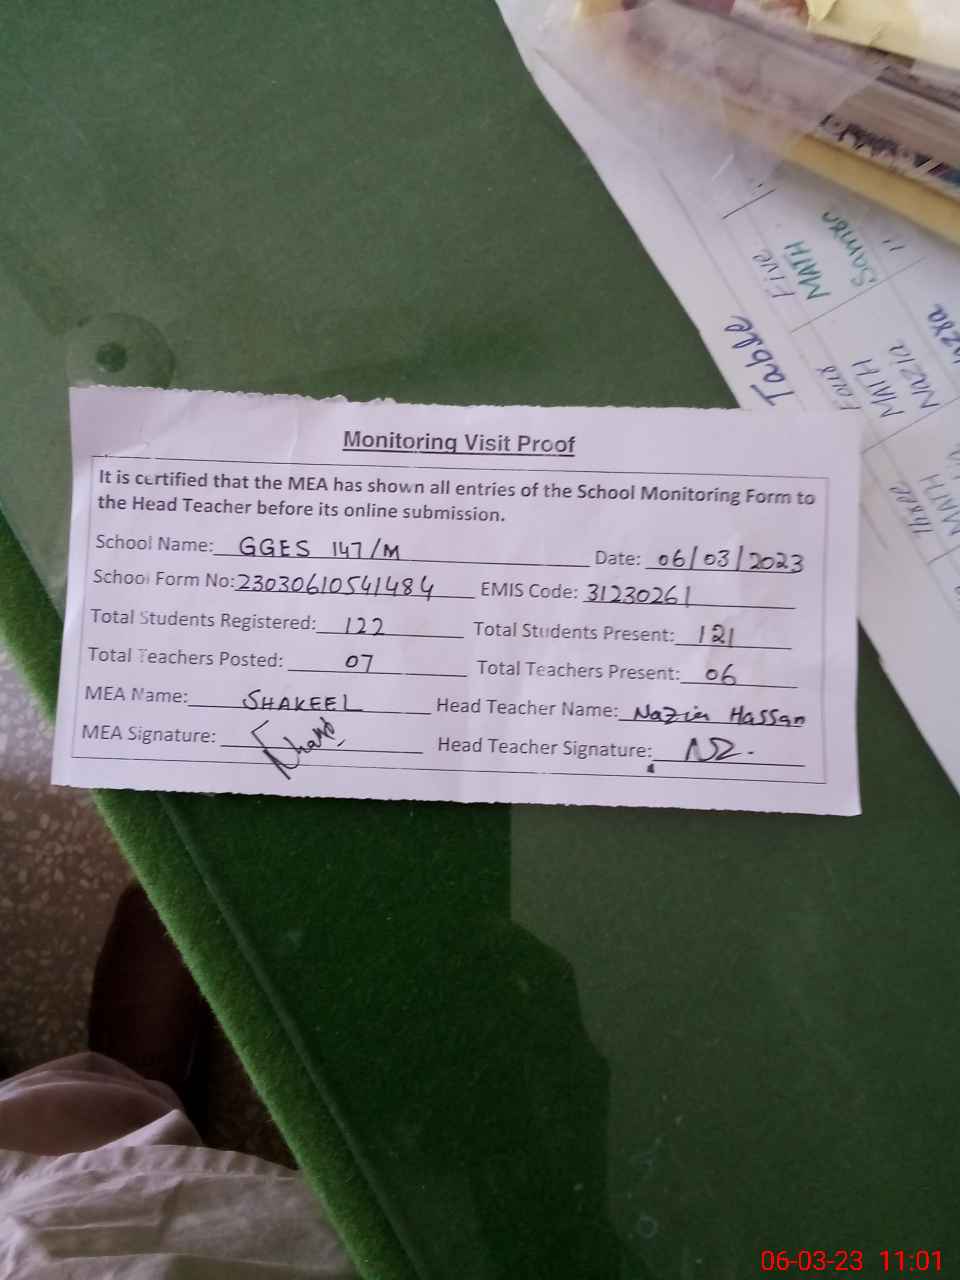 Monitoring Visit Proof
It is certified that the MEA has shown all entries of the School Monitoring Form to
the Head Teacher before its online submission.
School Name: GGES 147/M Date: 06/03/2023
School Form No: 23030610541484 EMIS Code: 31230261
Total Students Registered: 122 Total Students Present: 121
Total Teachers Posted: 07 Total Teachers Present: 06
MEA Name: SHAKEEL Head Teacher Name: Nazia Hassan
MEA Signature: Head Teacher Signature:
Table
Five
MATH
MATH
Nazia
Three
MATH
06-03-23 11:01